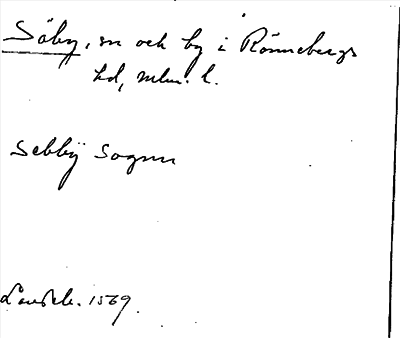 Säby, sn och by i Rönnebergs
hd, mlm. l.
Sebbÿ Sognn
Landeb. 1569.